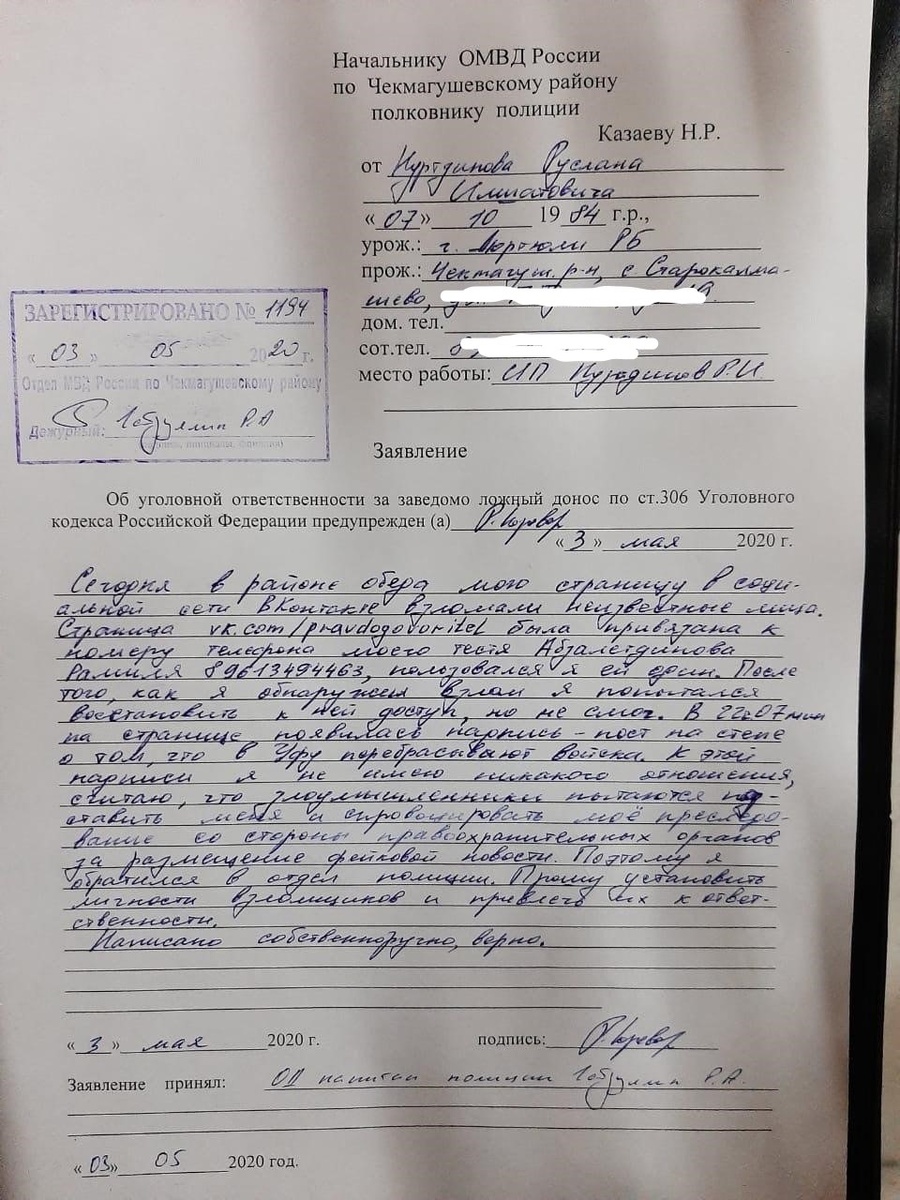 Начальнику ОМВД России
по Чекмагушевскому району
полковнику полиции
Казаеву Н.Р.
от Нуртдинова Руслана
« 07 » 10 19 84 г.р.,
урож.: г. Дюртюли РБ
прож.: Чекмагуш. р-н, с. Старокалма-
шево,
дом. тел.
сот.тел. 8
место работы: ИП Нуртдинов Р.И.
ЗАРЕГИСТРИРОВАНО № 1194
« 03 » 05 2020 г.
Отдел МВД России по Чекмагушевскому району
Дежурный: Габдуллин Р.А
Заявление
Об уголовной ответственности за заведомо ложный донос по ст.306 Уголовного
кодекса Российской Федерации предупрежден (а)
« 3 » мая 2020 г.
Сегодня в районе обеда мою страницу в соци-
альной сети ВКонтакте взломали неизвестные лица.
Страница vk.com/pravdogovoritel была привязана к
номеру телефона моего тестя Абзалетдинова
Рамиля 89613494463, пользовался я ей один. После
того, как я обнаружил взлом я попытался
восстановить к ней доступ, но не смог. В 22:07 мин
на странице появилась надпись - пост на стене
о том, что в Уфу перебрасывают войска. К этой
надписи я не имею никакого отношения,
считаю, что злоумышленники пытаются под-
ставить меня и спровоцировать моё преследо-
вание со стороны правоохранительных органов
за размещение фейковой новости. Поэтому я
обратился в отдел полиции. Прошу установить
личности взломщиков и привлечь их к ответ-
ственности.
Написано собственноручно, верно.
« 3 » мая 2020 г. подпись:
Заявление принял: ОД капитан полиции Габдуллин Р.А.
« 03 » 05 2020 год.